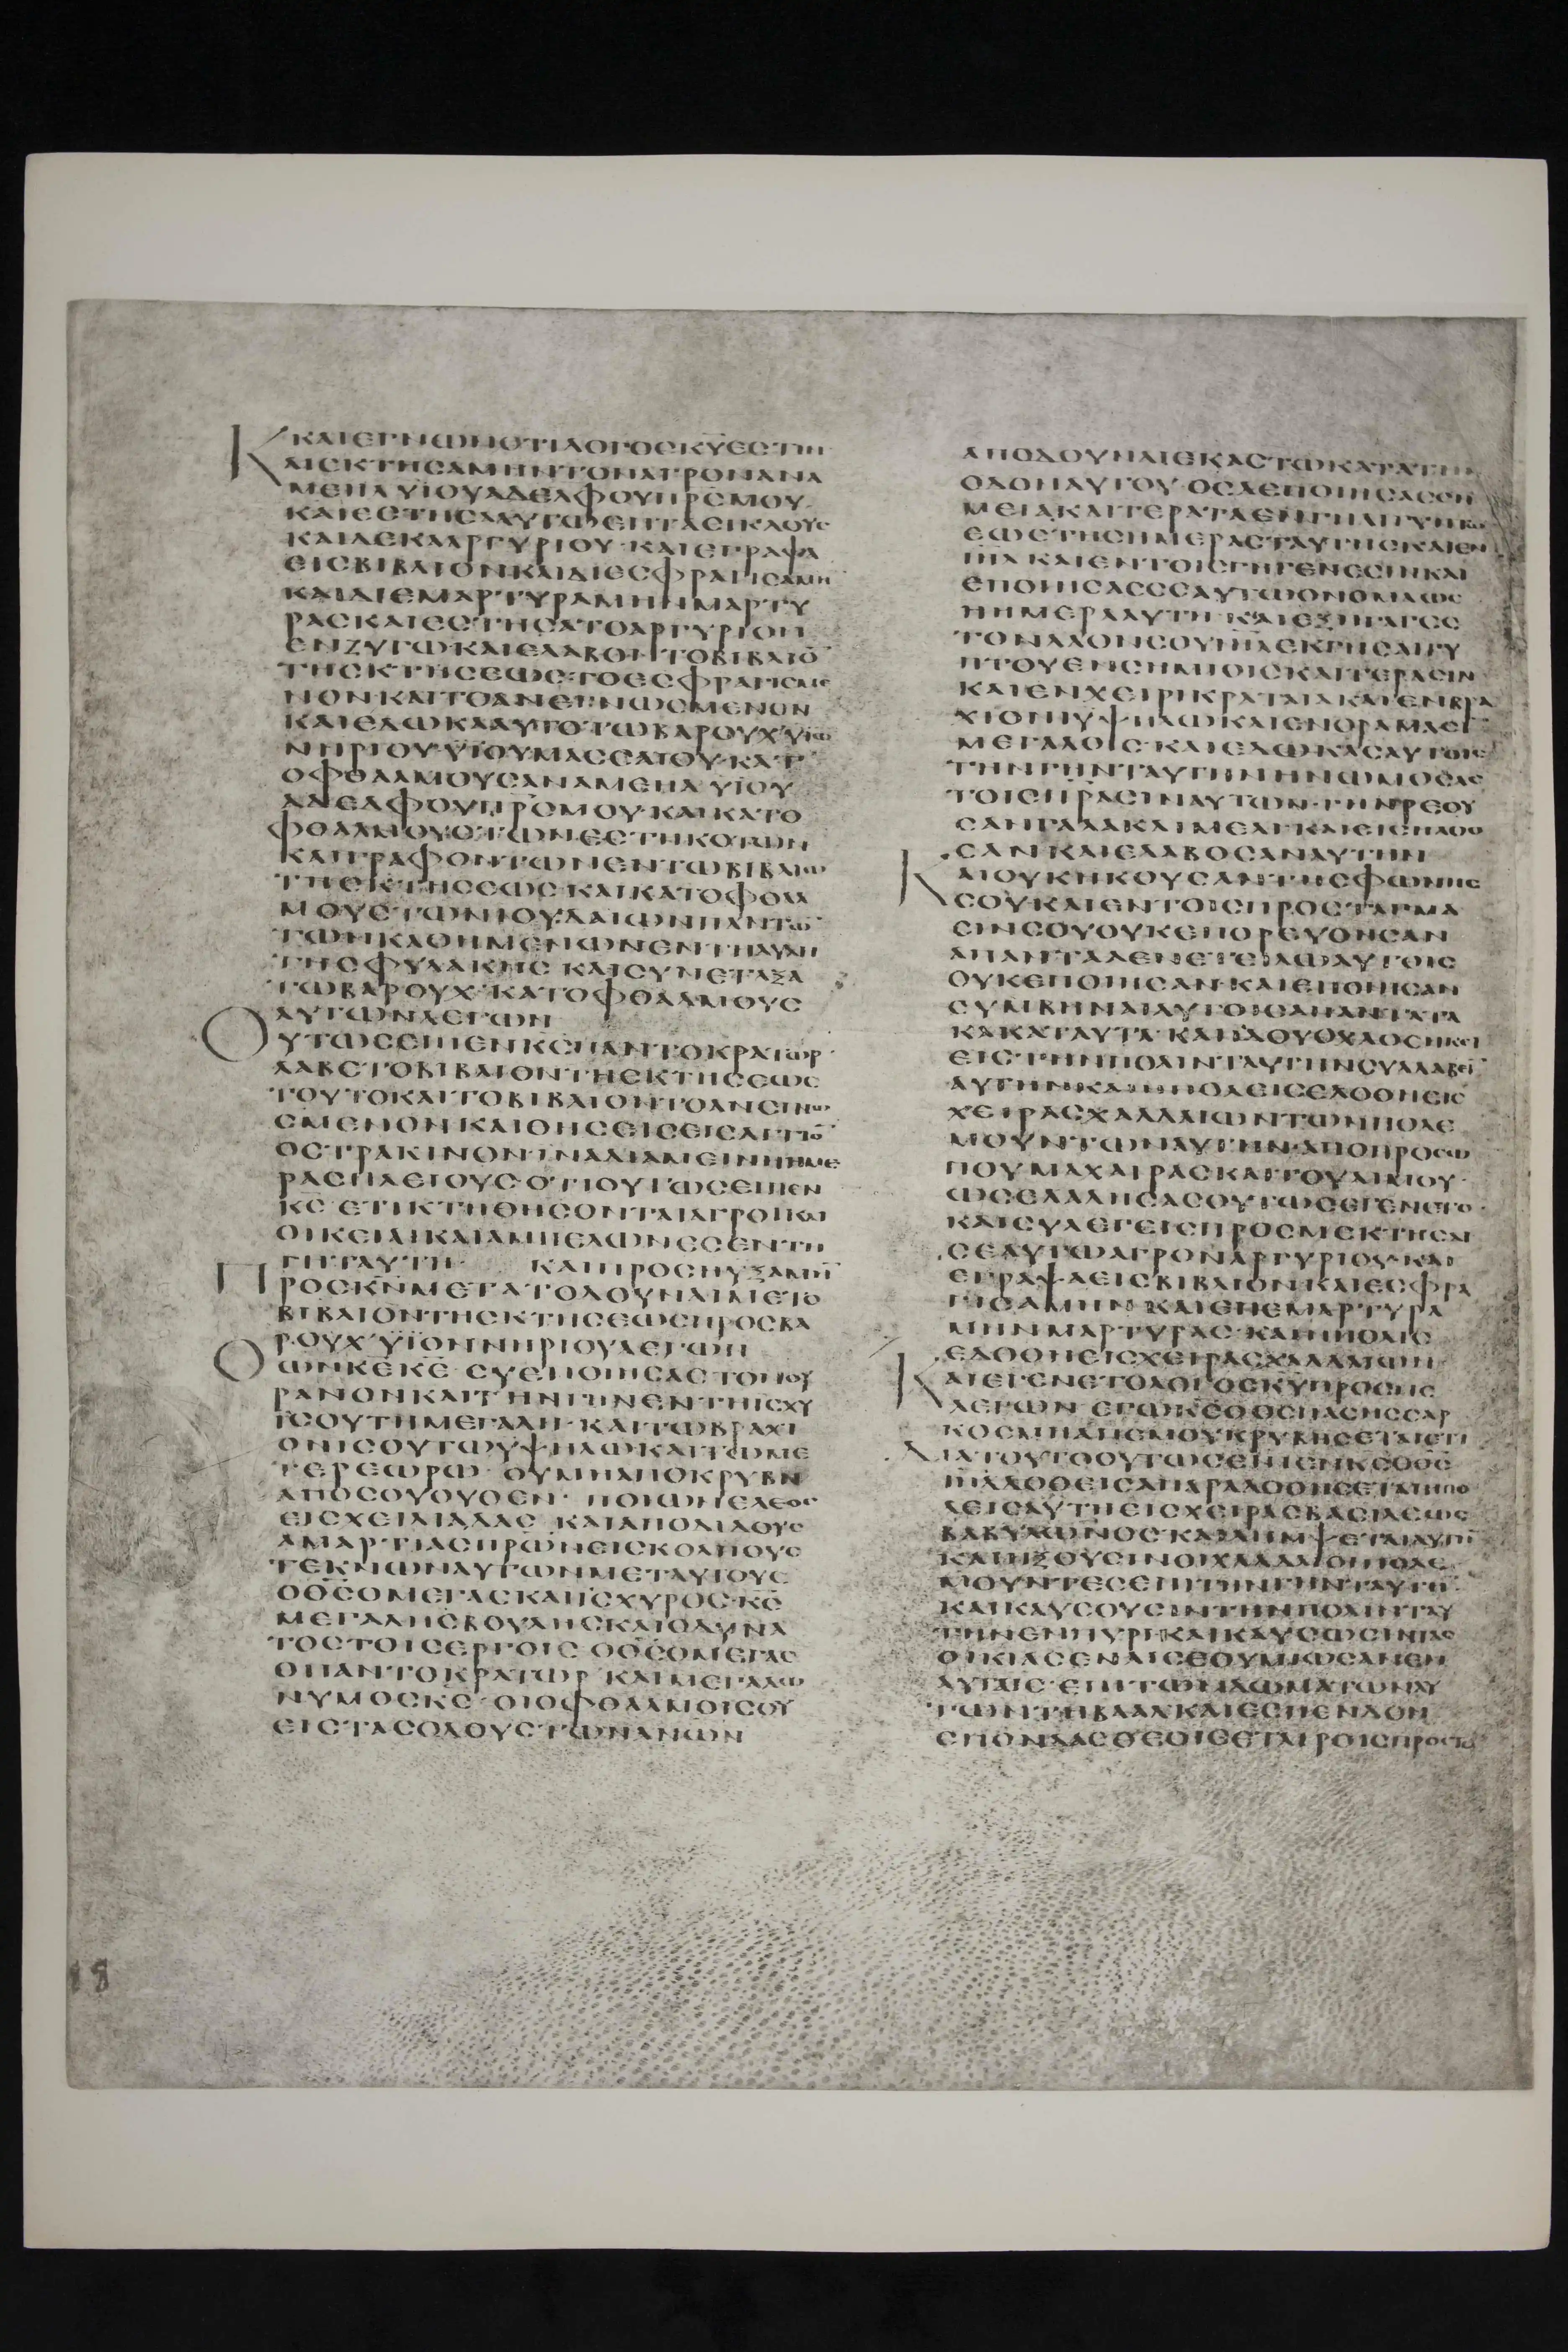 ΚΑΙΕΓΝΩΝΟΤΙΛΟΓΟΣΚΥΕΣΤΙΝ
ΚΑΙΕΚΤΗΣΑΜΗΝΤΟΝΑΓΡΟΝΑΝΑ
ΜΕΗΛΥΪΟΥΑΔΕΛΦΟΥΠΡΣΜΟΥ
ΚΑΙΕΣΤΗΣΑΑΥΤΩΕΠΤΑΣΙΚΛΟΥΣ
ΚΑΙΔΕΚΑΑΡΓΥΡΙΟΥ·ΚΑΙΕΓΡΑΨΑ
ΕΙΣΒΙΒΛΙΟΝΚΑΙΔΙΕΣΦΡΑΓΙΣΑΜΗ
ΚΑΙΔΙΕΜΑΡΤΥΡΑΜΗΝΜΑΡΤΥ
ΡΑΣΚΑΙΕΣΤΗΣΑΤΟΑΡΓΥΡΙΟΝ
ΕΝΖΥΓΩ·ΚΑΙΕΛΑΒΟΝΤΟΒΙΒΛΙΟ
ΤΗΣΚΤΗΣΕΩΣ·ΤΟΕΣΦΡΑΓΙΣΜΕ
ΝΟΝΚΑΙΤΟΑΝΕΓΝΩΣΜΕΝΟΝ
ΚΑΙΕΔΩΚΑΑΥΤΟΤΩΒΑΡΟΥΧΥΙΩ
ΝΗΡΙΟΥΥΪΟΥΜΑΣΣΑΙΟΥ·ΚΑΤ
ΟΦΘΑΛΜΟΥΣΑΝΑΜΕΗΛΥΪΟΥ
ΑΔΕΛΦΟΥΠΡΣΜΟΥ·ΚΑΙΚΑΤΟ
ΦΘΑΛΜΟΥΣΤΩΝΕΣΤΗΚΟΤΩΝ
ΚΑΙΓΡΑΦΟΝΤΩΝΕΝΤΩΒΙΒΛΙΩ
ΤΗΣΚΤΗΣΕΩΣ·ΚΑΙΚΑΤΟΦΘΑΛ
ΜΟΥΣΤΩΝΙΟΥΔΑΙΩΝΠΑΝΤΩ
ΤΩΝΚΑΘΗΜΕΝΩΝΕΝΤΗΑΥΛΗ
ΤΗΣΦΥΛΑΚΗΣ ΚΑΙΣΥΝΕΤΑΞΑ
ΤΩΒΑΡΟΥΧ·ΚΑΤΟΦΘΑΛΜΟΥΣ
ΑΥΤΩΝΛΕΓΩΝ
ΟΥΤΩΣΕΙΠΕΝΚΣΠΑΝΤΟΚΡΑΤΩΡ
ΛΑΒΕΤΟΒΙΒΛΙΟΝΤΗΣΚΤΗΣΕΩΣ
ΤΟΥΤΟΚΑΙΤΟΒΙΒΛΙΟΝΤΟΑΝΕΓΝΩ
ΣΜΕΝΟΝΚΑΙΘΗΣΕΙΣΕΙΣΑΓΓΙΟ
ΟΣΤΡΑΚΙΝΟΝ·ΙΝΑΔΙΑΜΕΙΝΗΗΜΕ
ΡΑΣΠΛΕΙΟΥΣ·ΟΤΙΟΥΤΩΣΕΙΠΕΝ
ΚΣ ΕΤΙΚΤΗΘΗΣΟΝΤΑΙΑΓΡΟΙΚΑΙ
ΟΙΚΕΙΑΙΚΑΙΑΜΠΕΛΩΝΕΣΕΝΤΗ
ΓΗΤΑΥΤΗ ΚΑΙΠΡΟΣΗΥΞΑΜΗ
ΠΡΟΣΚΝΜΕΤΑΤΟΔΟΥΝΑΙΜΕΤΟ
ΒΙΒΛΙΟΝΤΗΣΚΤΗΣΕΩΣΠΡΟΣΒΑ
ΡΟΥΧ ΥΪΟΝΝΗΡΙΟΥΛΕΓΩΝ
ΟΩΝΚΕΚΕ ΣΥΕΠΟΙΗΣΑΣΤΟΝΟΥ
ΡΑΝΟΝΚΑΙΤΗΝΓΗΝΕΝΤΗΙΣΧΥ
ΪΣΟΥΤΗΜΕΓΑΛΗ·ΚΑΙΤΩΒΡΑΧΙ
ΟΝΙΣΟΥΤΩΥΨΗΛΩΚΑΙΤΩΜΕ
ΤΕΡΕΩΡΩ·ΟΥΜΗΑΠΟΚΡΥΒΗ
ΑΠΟΣΟΥΟΥΘΕΝ· ΠΟΙΩΝΕΛΕΟΣ
ΕΙΣΧΕΙΛΙΑΔΑΣ ΚΑΙΑΠΟΔΙΔΟΥΣ
ΑΜΑΡΤΙΑΣΠΡΩΝΕΙΣΚΟΛΠΟΥΣ
ΤΕΚΝΩΝΑΥΤΩΝΜΕΤΑΥΤΟΥΣ
ΟΘΣΟΜΕΓΑΣΚΑΙΙΣΧΥΡΟΣ·ΚΣ
ΜΕΓΑΛΗΣΒΟΥΛΗΣΚΑΙΟΔΥΝΑ
ΤΟΣΤΟΙΣΕΡΓΟΙΣ ΟΘΣΟΜΕΓΑΣ
ΟΠΑΝΤΟΚΡΑΤΩΡ ΚΑΙΜΕΓΑΛΩ
ΝΥΜΟΣΚΣ·ΟΙΟΦΘΑΛΜΟΙΣΟΥ
ΕΙΣΤΑΣΟΔΟΥΣΤΩΝΑΝΩΝ
ΑΠΟΔΟΥΝΑΙΕΚΑΣΤΩΚΑΤΑΤΗΝ
ΟΔΟΝΑΥΤΟΥ·ΟΣΔΕΠΟΙΗΣΑΣΣΗ
ΜΕΙΑΚΑΙΤΕΡΑΤΑΕΝΓΗΑΙΓΥΠΤΩ
ΕΩΣΤΗΣΗΜΕΡΑΣΤΑΥΤΗΣΚΑΙΕΝ
ΙΗΛ ΚΑΙΕΝΤΟΙΣΓΗΓΕΝΕΣΙΝΚΑΙ
ΕΠΟΙΗΣΑΣΣΕΑΥΤΩΟΝΟΜΑΩΣ
ΗΗΜΕΡΑΑΥΤΗ·ΚΑΙΕΞΗΓΑΓΕΣ
ΤΟΝΛΑΟΝΣΟΥΙΗΛΕΚΓΗΣΑΙΓΥ
ΠΤΟΥΕΝΣΗΜΙΟΙΣΚΑΙΤΕΡΑΣΙΝ
ΚΑΙΕΝΧΕΙΡΙΚΡΑΤΑΙΑΚΑΙΕΝΒΡΑ
ΧΙΟΝΙΥΨΗΛΩΚΑΙΕΝΟΡΑΜΑΣΙ
ΜΕΓΑΛΟΙΣ·ΚΑΙΕΔΩΚΑΣΑΥΤΟΙΣ
ΤΗΝΓΗΝΤΑΥΤΗΝΗΝΩΜΟΣΑΣ
ΤΟΙΣΠΡΑΣΙΝΑΥΤΩΝ·ΓΗΝΡΕΟΥ
ΣΑΝΓΑΛΑΚΑΙΜΕΛΙ·ΚΑΙΕΙΣΗΛΘΟ
ΣΑΝΚΑΙΕΛΑΒΟΣΑΝΑΥΤΗΝ
ΚΑΙΟΥΚΗΚΟΥΣΑΝΤΗΣΦΩΝΗΣ
ΣΟΥΚΑΙΕΝΤΟΙΣΠΡΟΣΤΑΓΜΑ
ΣΙΝΣΟΥΟΥΚΕΠΟΡΕΥΘΗΣΑΝ
ΑΠΑΝΤΑΑΕΝΕΤΕΙΛΩΑΥΤΟΙΣ
ΟΥΚΕΠΟΙΗΣΑΝ·ΚΑΙΕΠΟΙΗΣΑΝ
ΣΥΜΒΗΝΑΙΑΥΤΟΙΣΑΠΑΝΤΑΤΑ
ΚΑΚΑΤΑΥΤΑ·ΚΑΙΙΔΟΥΟΧΛΟΣΗΚΕΙ
ΕΙΣΤΗΝΠΟΛΙΝΤΑΥΤΗΝΣΥΛΛΑΒΕΙ
ΑΥΤΗΝ·ΚΑΙΗΠΟΛΕΙΣΕΔΟΘΗΕΙΣ
ΧΕΙΡΑΣΧΑΛΔΑΙΩΝΤΩΝΠΟΛΕ
ΜΟΥΝΤΩΝΑΥΤΗΝ·ΑΠΟΠΡΟΣΩ
ΠΟΥΜΑΧΑΙΡΑΣΚΑΙΤΟΥΛΙΜΟΥ·
ΩΣΕΛΑΛΗΣΑΣΟΥΤΩΣΕΓΕΝΕΤΟ·
ΚΑΙΣΥΛΕΓΕΙΣΠΡΟΣΜΕΚΤΗΣΑΙ
ΣΕΑΥΤΩΑΓΡΟΝΑΡΓΥΡΙΟΥ·ΚΑΙ
ΕΓΡΑΨΑΕΙΣΒΙΒΛΙΟΝ·ΚΑΙΕΣΦΡΑ
ΓΙΣΑΜΗΝ·ΚΑΙΕΠΕΜΑΡΤΥΡΑ
ΜΗΝΜΑΡΤΥΡΑΣ·ΚΑΙΗΠΟΛΙΣ
ΕΔΟΘΗΕΙΣΧΕΙΡΑΣΧΑΛΔΑΙΩΝ
ΚΑΙΕΓΕΝΕΤΟΛΟΓΟΣΚΥΠΡΟΣΜΕ
ΛΕΓΩΝ ΕΓΩΚΣΟΘΣΠΑΣΗΣΣΑΡ
ΚΟΣΜΗΑΠΕΜΟΥΚΡΥΒΗΣΕΤΑΙΤΙ
ΔΙΑΤΟΥΤΟΟΥΤΩΣΕΙΠΕΝΚΣΟΘΣ
ΙΗΛΔΟΘΕΙΣΑΠΑΡΑΔΟΘΗΣΕΤΑΙΗΠΟ
ΛΕΙΣΑΥΤΗΕΙΣΧΕΙΡΑΣΒΑΣΙΛΕΩΣ
ΒΑΒΥΛΩΝΟΣ·ΚΑΙΛΗΜΨΕΤΑΙΑΥΤΗ
ΚΑΙΗΞΟΥΣΙΝΟΙΧΑΛΔΑΙΟΙΠΟΛΕ
ΜΟΥΝΤΕΣΕΠΙΤΗΝΓΗΝΤΑΥΤΗ
ΚΑΙΚΑΥΣΟΥΣΙΝΤΗΝΠΟΛΙΝΤΑΥ
ΤΗΝΕΝΠΥΡΙ·ΚΑΙΚΑΥΣΩΣΙΝΤΑΣ
ΟΙΚΙΑΣΕΝΑΙΣΕΘΥΜΙΩΣΑΝΕΝ
ΑΥΤΑΙΣ·ΕΠΙΤΩΝΔΩΜΑΤΩΝΑΥ
ΤΩΝΤΗΒΑΑΛΚΑΙΕΣΠΕΝΔΟΝ
ΣΠΟΝΔΑΣΘΕΟΙΣΕΤΑΙΡΟΙΣΠΡΟΣΤΟ
18